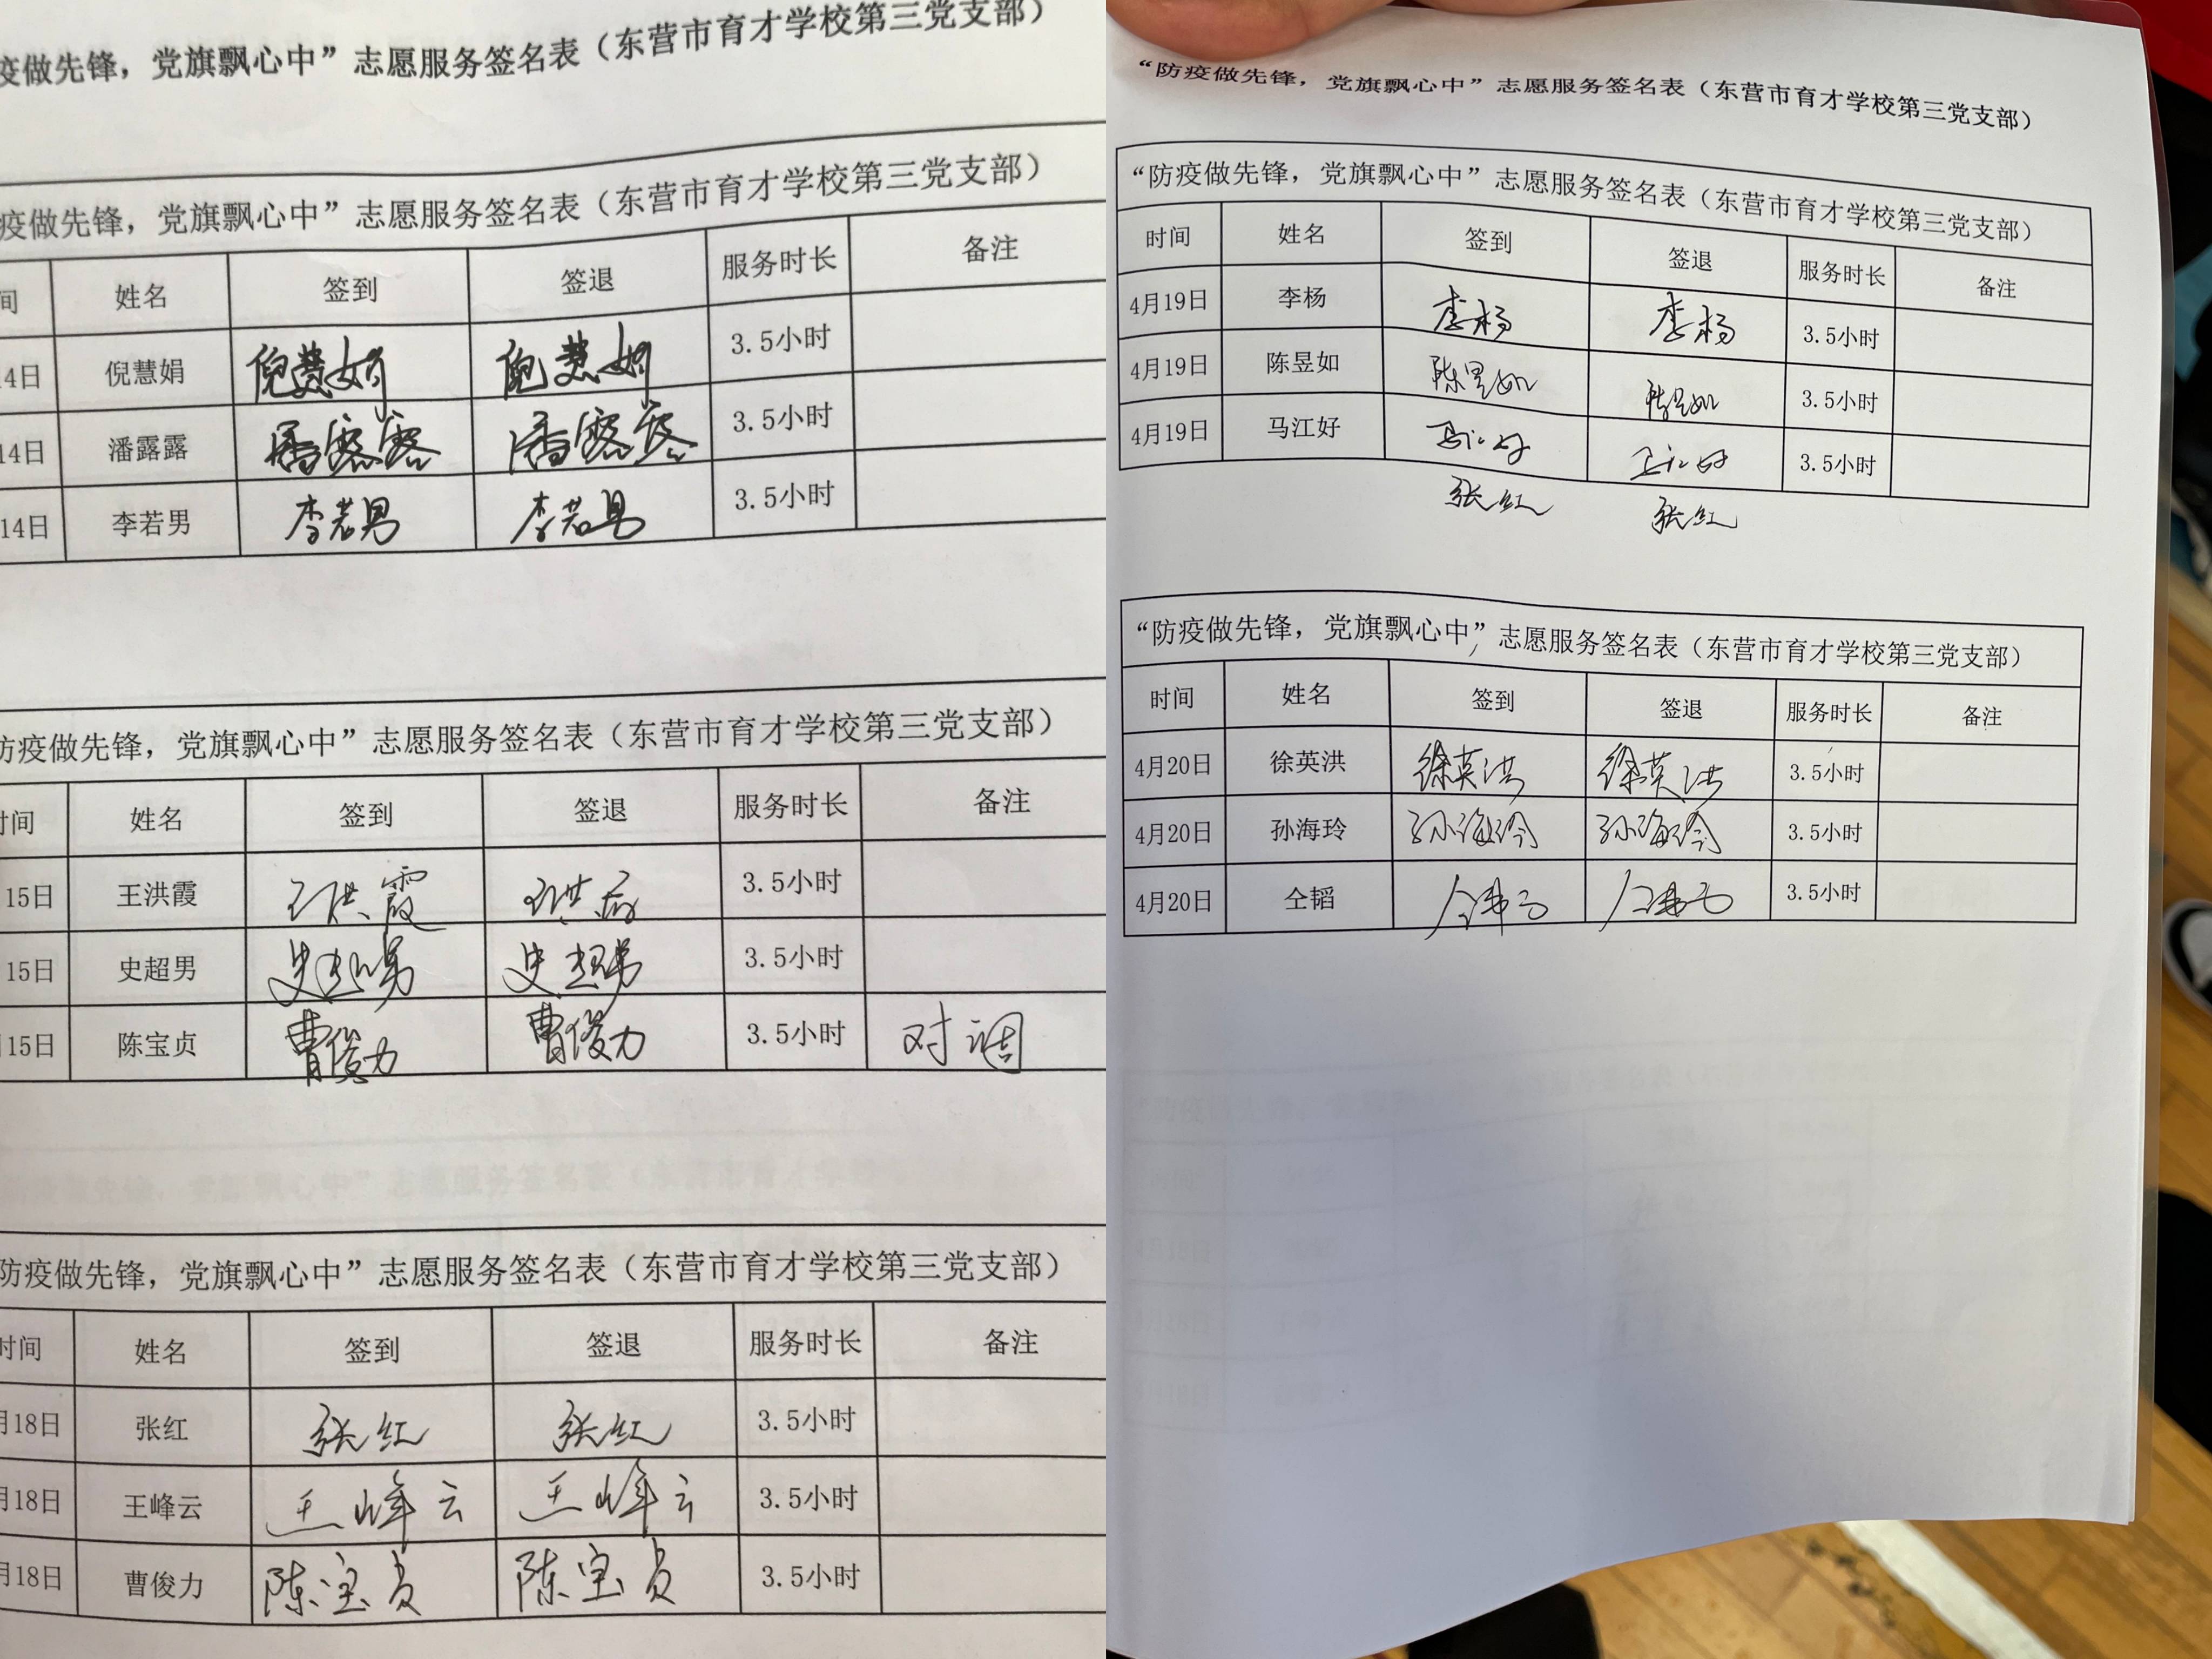 疫做先锋，党旗飘心中”志愿服务签名表（东营市育才学校第三党支部）
疫做先锋，党旗飘心中”志愿服务签名表（东营市育才学校第三党支部）
间 姓名 签到 签退 服务时长 备注
14日 倪慧娟 倪慧娟 倪慧娟 3.5小时
14日 潘露露 潘露露 潘露露 3.5小时
14日 李若男 李若男 李若男 3.5小时
防疫做先锋，党旗飘心中”志愿服务签名表（东营市育才学校第三党支部）
时间 姓名 签到 签退 服务时长 备注
15日 王洪霞 王洪霞 王洪霞 3.5小时
15日 史超男 史超男 史超男 3.5小时
15日 陈宝贞 曹俊力 曹俊力 3.5小时 对调
防疫做先锋，党旗飘心中”志愿服务签名表（东营市育才学校第三党支部）
时间 姓名 签到 签退 服务时长 备注
月18日 张红 张红 张红 3.5小时
月18日 王峰云 王峰云 王峰云 3.5小时
月18日 曹俊力 陈宝贞 陈宝贞 3.5小时
“防疫做先锋，党旗飘心中”志愿服务签名表（东营市育才学校第三党支部）
“防疫做先锋，党旗飘心中”志愿服务签名表（东营市育才学校第三党支部）
时间 姓名 签到 签退 服务时长 备注
4月19日 李杨 李杨 李杨 3.5小时
4月19日 陈昱如 陈昱如 陈昱如 3.5小时
4月19日 马江好 马江好 马江好 3.5小时
张红 张红
“防疫做先锋，党旗飘心中”志愿服务签名表（东营市育才学校第三党支部）
时间 姓名 签到 签退 服务时长 备注
4月20日 徐英洪 徐英洪 徐英洪 3.5小时
4月20日 孙海玲 孙海玲 孙海玲 3.5小时
4月20日 仝韬 仝韬 仝韬 3.5小时